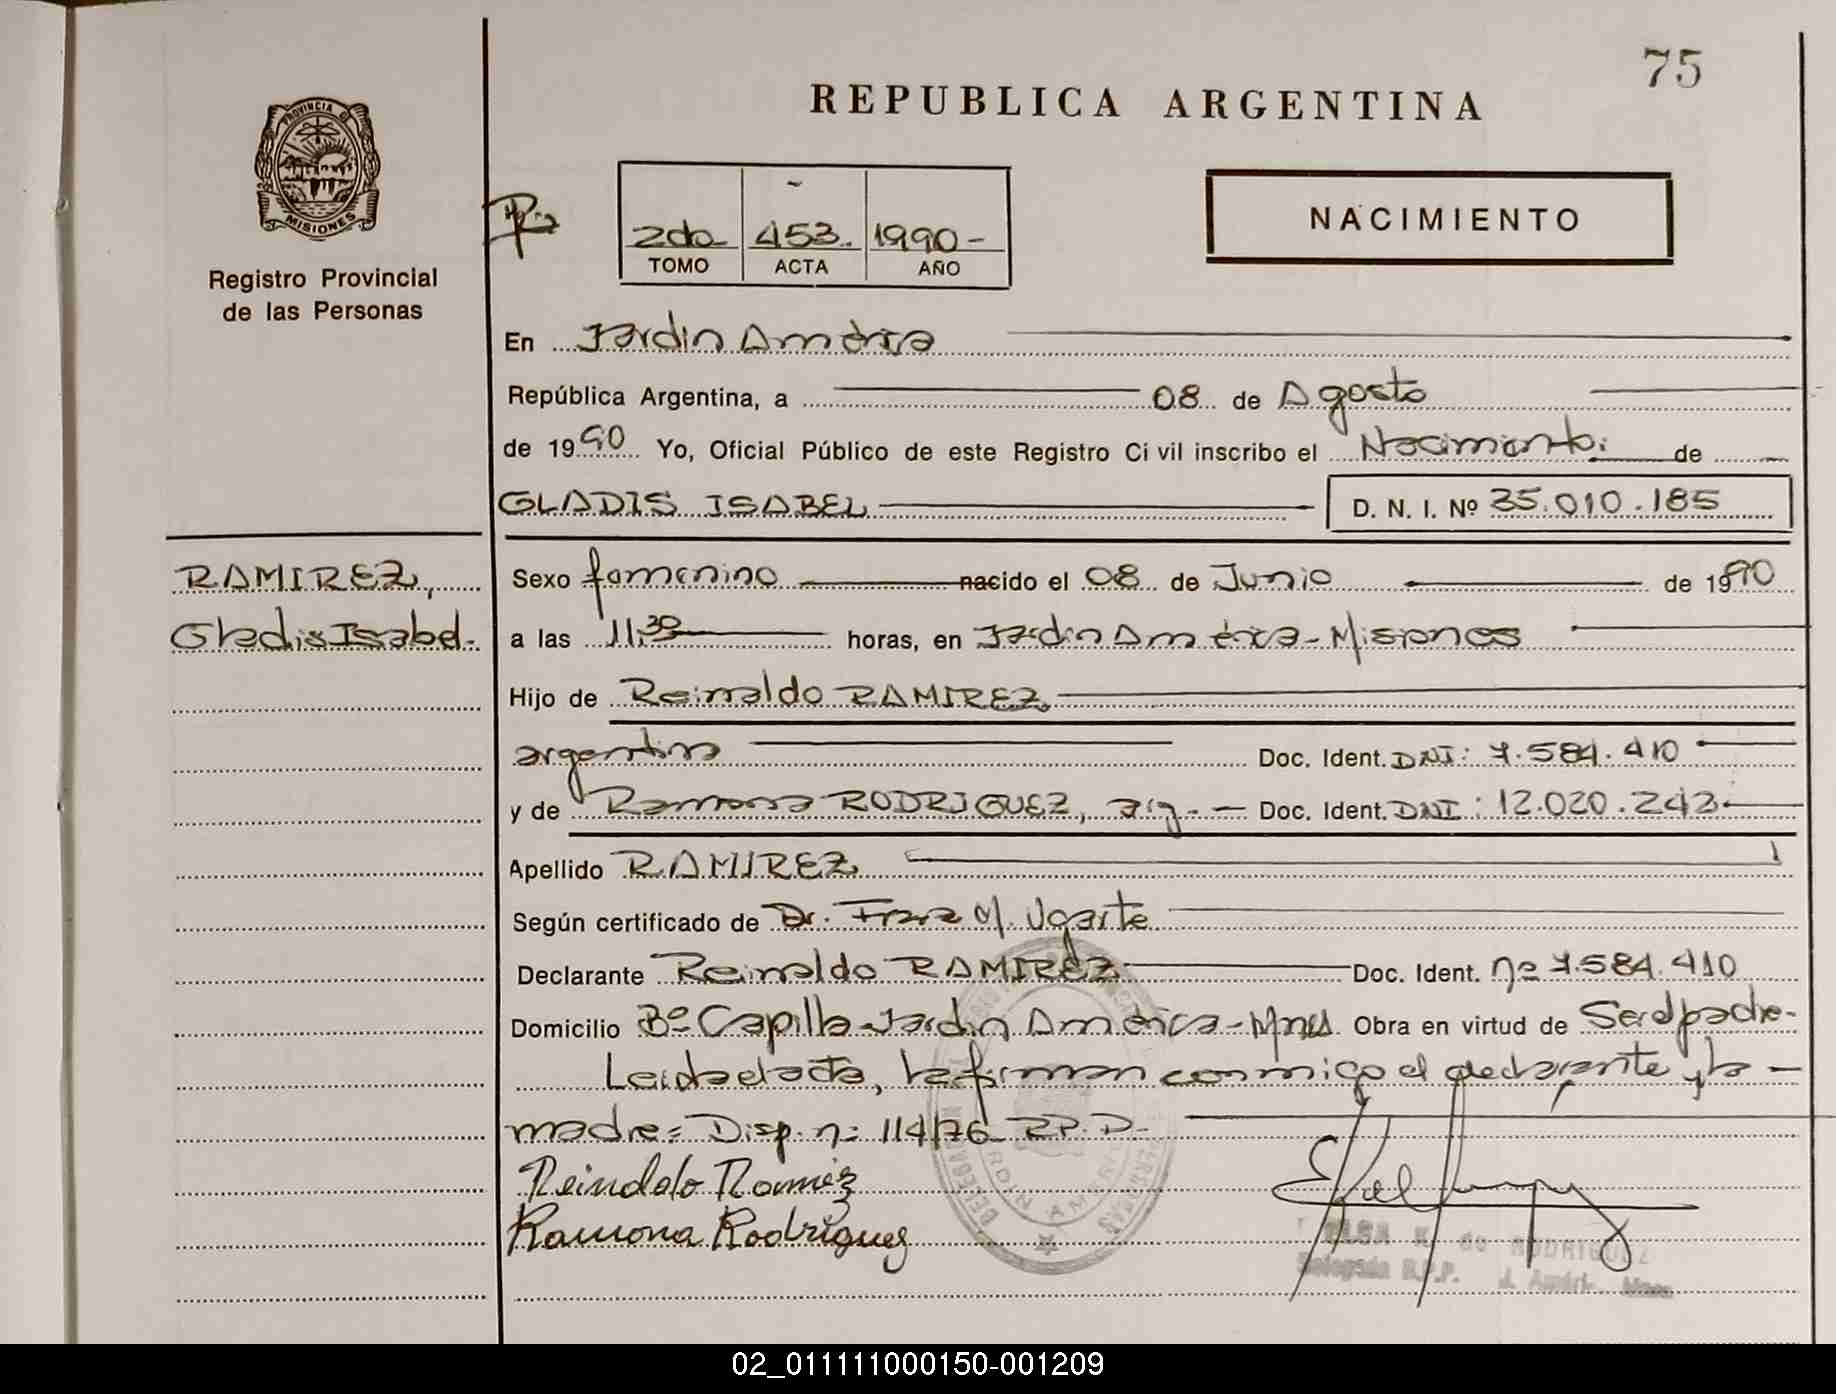 75
REPUBLICA ARGENTINA
PROVINCIA DE
MISIONES
Registro Provincial
de las Personas
2do 453. 1990-
TOMO ACTA AÑO
NACIMIENTO
En Jardín América
República Argentina, a 08 de Agosto
de 1990 Yo, Oficial Público de este Registro Civil inscribo el Nacimiento. de
GLADIS ISABEL D. N. I. Nº 35.010.185
RAMIREZ,
Gladis Isabel.
Sexo femenino nacido el 08 de Junio de 1990
a las 11,30 horas, en Jardín América-Misiones
Hijo de Reinaldo RAMIREZ
argentino Doc. Ident. DNI: 7.584.410
y de Ramona RODRIGUEZ, arg. Doc. Ident. DNI: 12.020.243
Apellido RAMIREZ
Según certificado de Dr. M. Ugarte
Declarante Reinaldo RAMIREZ Doc. Ident. nº 7.584.410
Domicilio Bº Capilla-Jardín América-Mnes Obra en virtud de Ser el padre-
Leída el acta, la firman conmigo el declarante y la
madre= Disp. nº 114/76 R.P.D.
Reindolo Ramirez
Ramona Rodriguez
ELSA de RODRIGUEZ
Delegada R.P.P. J. Améri
02_011111000150-001209